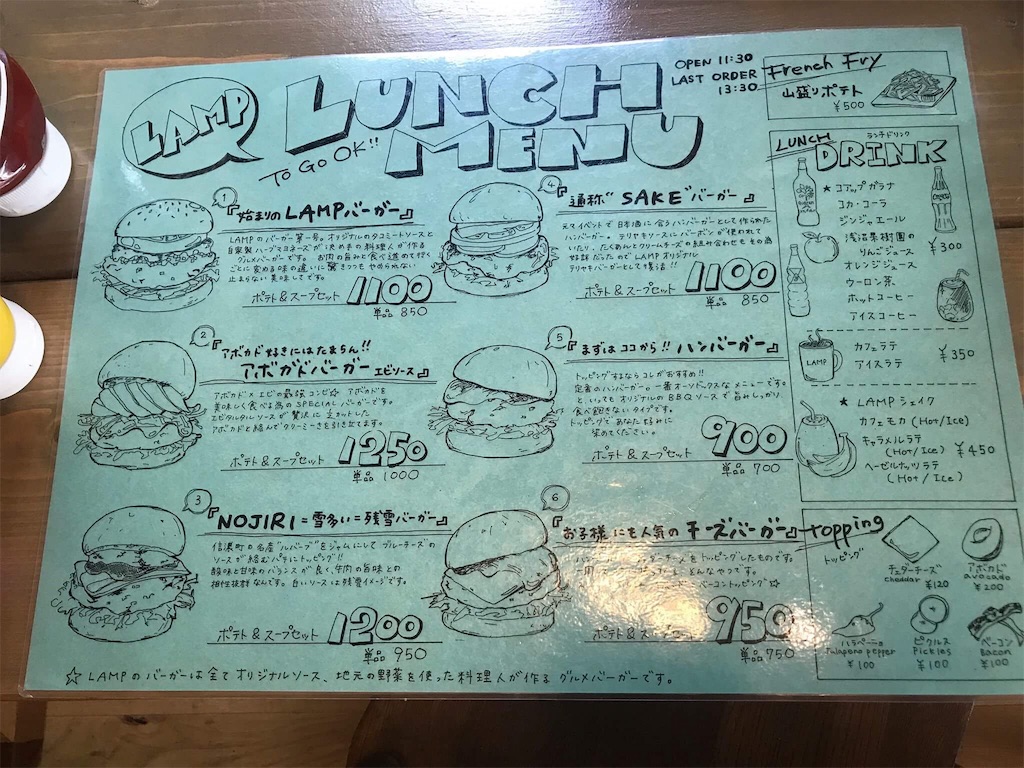 LAMP
LUNCH
MENU
TO GO OK!!
OPEN 11:30
LAST ORDER
13:30
1
『始まりのLAMPバーガー』
LAMPのバーガー第一号。オリジナルのタコミートソースと
自家製ハーブマヨネーズが決め手の料理人が作る
グルメバーガーです。お肉の旨みと食べ進めて行く
ごとに変わる味の違いに驚きつつもやめられない
止まらない美味しさです。
ポテト&スープセット 1100
単品 850
2
『アボカド好きにはたまらん!!
アボガドバーガー エビソース』
アボカド×エビの最強コンビ☆ アボカドを
美味しく食べる為のSPECIALバーガーです。
エビタルタルソースが贅沢に
アボカドと絡んでクリーミーさを引き立てます。
ポテト&スープセット 1250
単品 1000
3
『NOJIRI=雪多い=残雪バーガー』
信濃町の名産"ルバーブ"をジャムにしてブルーチーズの
ソースが絡むパテにトッピング!!
酸味と甘味のバランスが良く、牛肉の旨味との
相性抜群なんです。白いソースは残雪イメージです。
ポテト&スープセット 1200
単品 950
4
『通称"SAKE"バーガー』
某イベントで日本酒に合うハンバーガーとして作られた
ハンバーガー。テリヤキソースにバーボンが使われて
いたり、たくあんとクリームチーズの組み合わせもその為
好評だったのでLAMPオリジナル
テリヤキバーガーとして復活!!
ポテト&スープセット 1100
単品 850
5
『まずはココから!! ハンバーガー』
トッピングするならコレがおすすめ!!
定番のハンバーガー。一番オーソドックスなメニューです。
と、いってもオリジナルのBBQソースで旨みしっかり
食べ飽きないタイプです。
トッピングであなた好みに
染めてください。
ポテト&スープセット 900
単品 700
6
『お子様にも人気のチーズバーガー』
チーズをトッピングしたものです。
どんなやつです。
ベーコントッピング☆
ポテト&スープセット 950
単品 750
☆LAMPのバーガーは全てオリジナルソース、地元の野菜を使った料理人が作るグルメバーガーです。
French Fry
山盛りポテト
¥500
LUNCH
ランチドリンク
DRINK
★コアップガラナ
コカ・コーラ
ジンジャエール
浅沼果樹園の
りんごジュース
オレンジジュース
ウーロン茶
ホットコーヒー
アイスコーヒー
¥300
LAMP
カフェラテ
アイスラテ
¥350
★LAMPシェイク
カフェモカ (Hot/Ice)
キャラメルラテ
(Hot/Ice)
ヘーゼルナッツラテ
(Hot/Ice)
¥450
Topping
トッピング
チェダーチーズ
cheddar ¥120
アボカド
avocado
¥200
ハラペーニョ
Jalapeno pepper
¥100
ピクルス
Pickles
¥100
ベーコン
Bacon
¥100